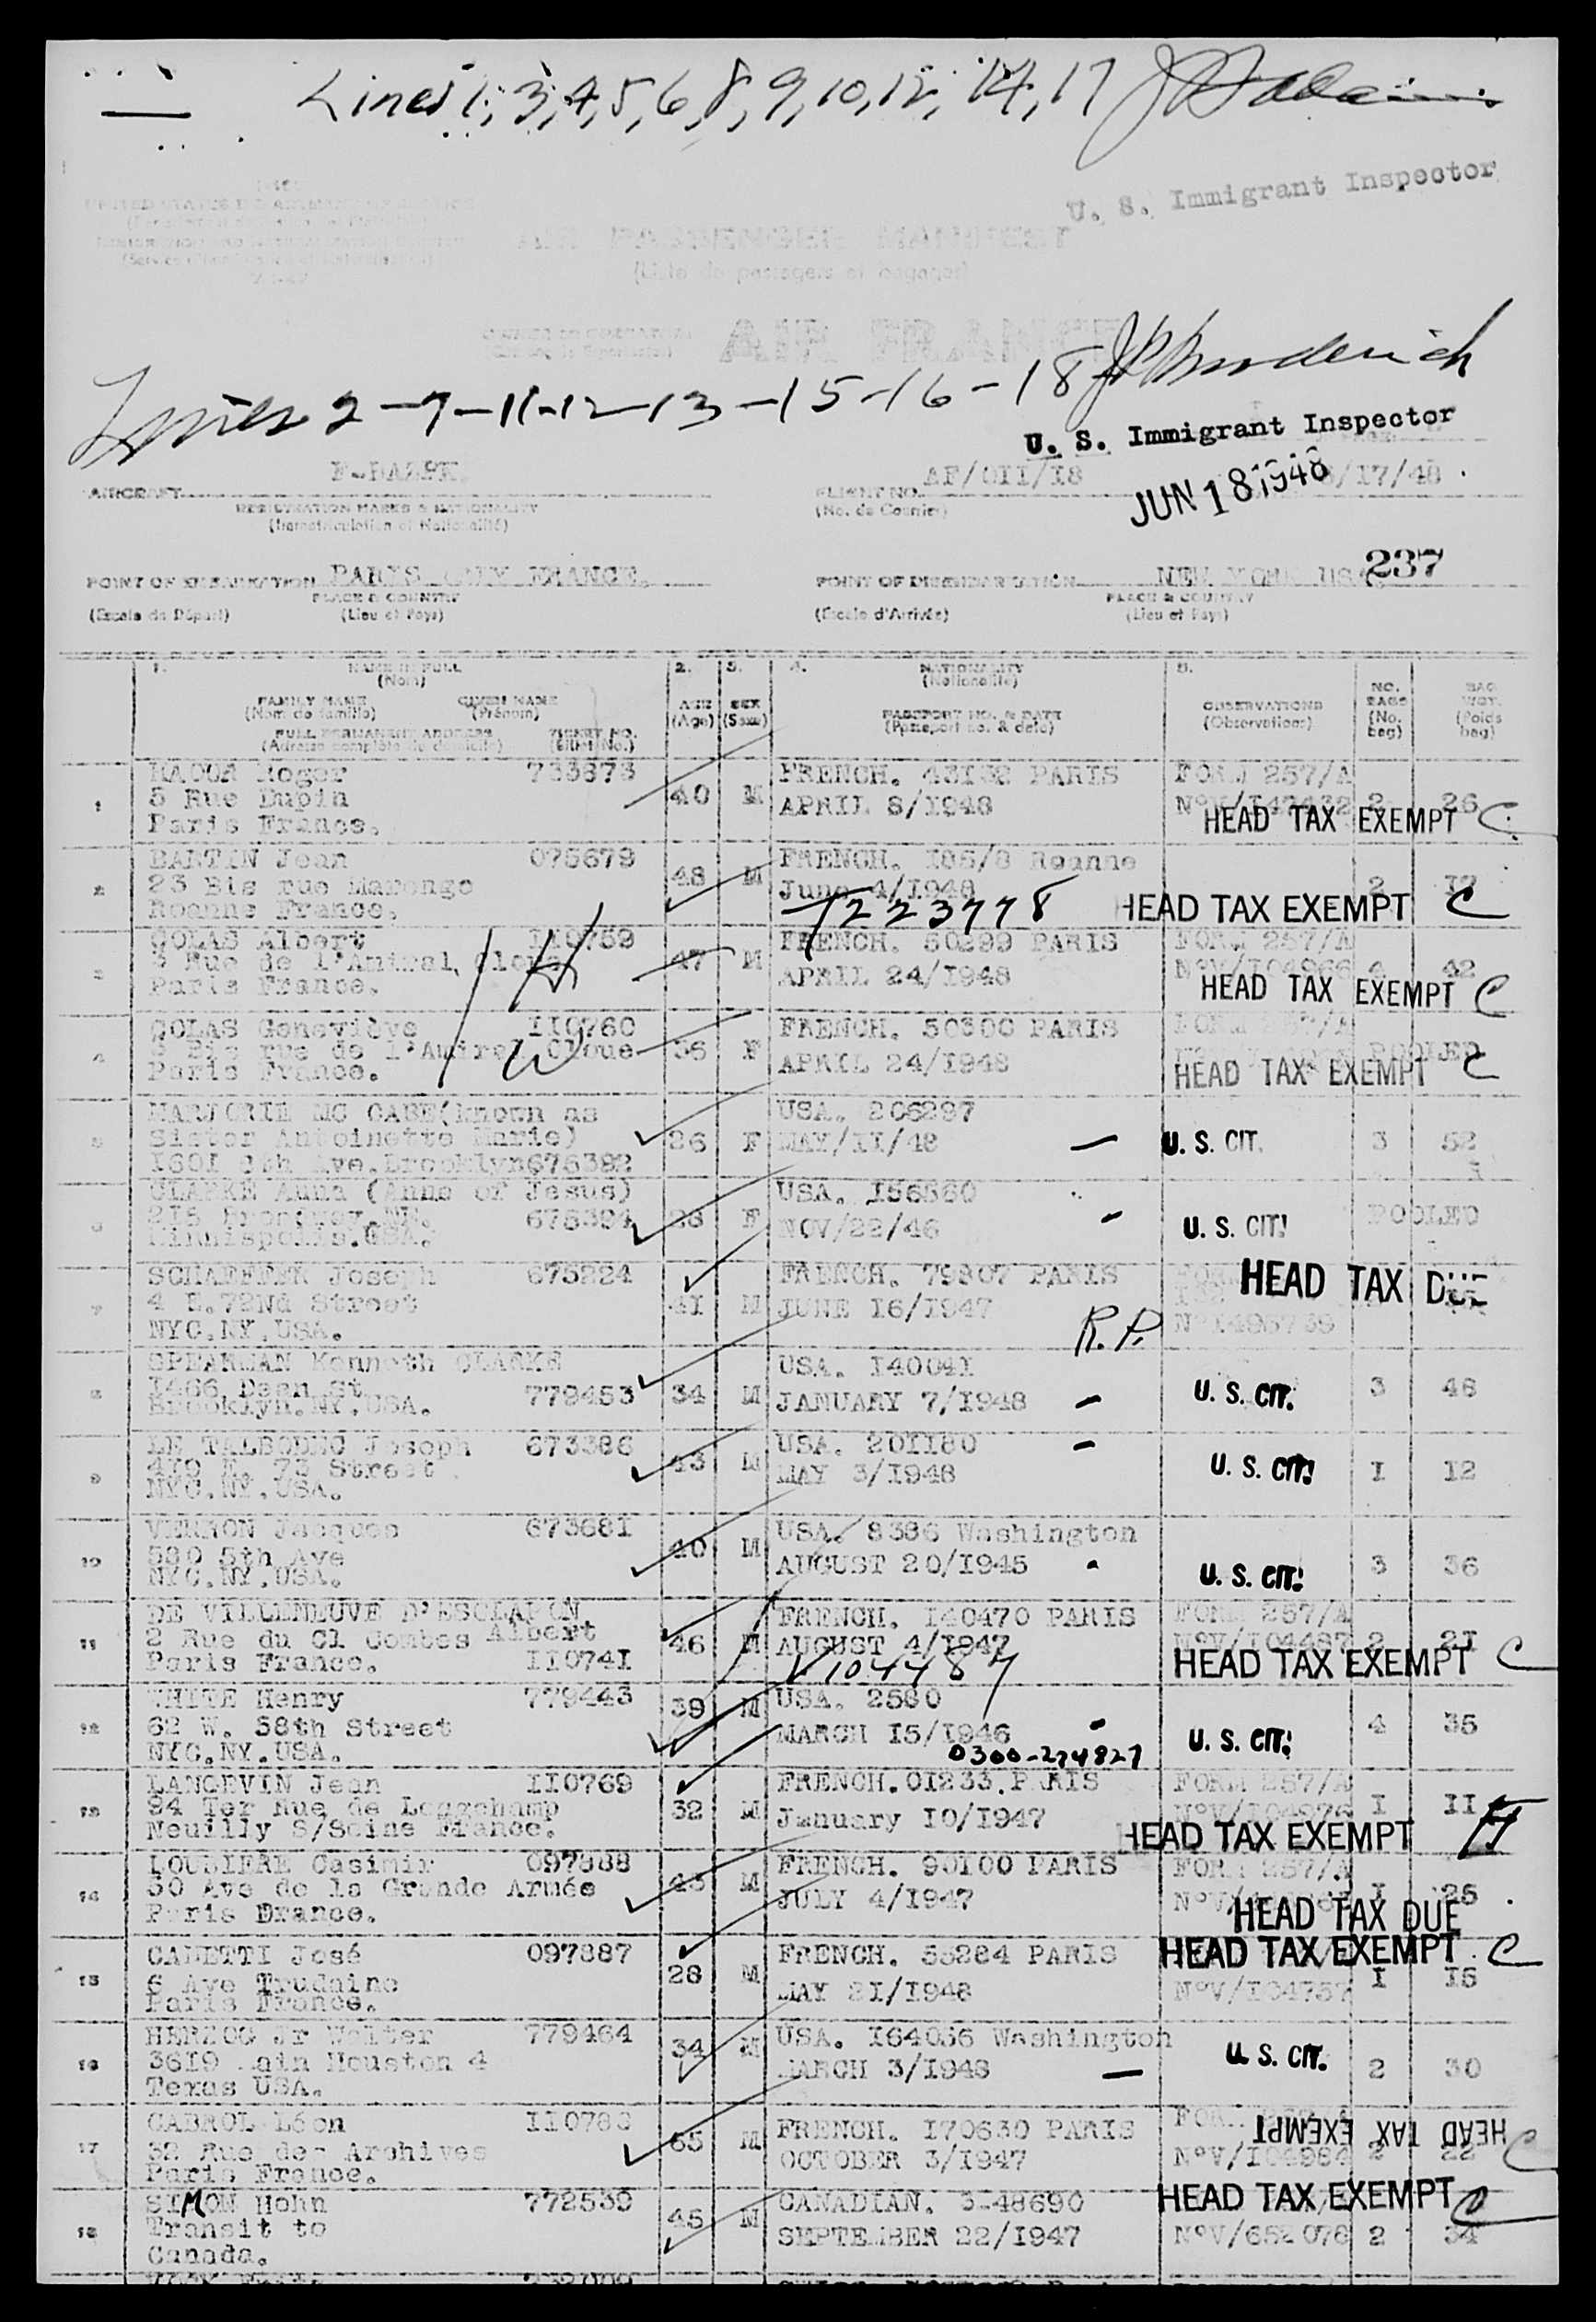 Lines 1, 3, 4, 5, 6, 8, 9, 10, 12, 14, 17
U. S. Immigrant Inspector
AIR PASSENGER MANIFEST
(Liste de passagers et bagages)
AIR FRANCE
Lines 2-7-11-12-13-15-16-18 J P Broderick
U. S. Immigrant Inspector
AF/OII/I8
/17/48
JUN 18 1948
AIRCRAFT
FLIGHT NO.
REGISTRATION MARKS & NATIONALITY
(No. de Courrier)
(Immatriculation et Nationalité)
237
POINT OF EMBARKATION PARIS ORLY FRANCE.
POINT OF DISEMBARKATION NEW YORK USA
PLACE & COUNTRY
PLACE & COUNTRY
(Escale de Départ) (Lieu et Pays)
(Escale d'Arrivée) (Lieu et Pays)
1. NAME IN FULL 2. 3. 4. NATIONALITY 5.
(Nom) (Nationalité)
FAMILY NAME GIVEN NAME AGE SEX OBSERVATIONS NO. BAGS BAG. WGT.
(Nom de famille) (Prénom) (Age) (Sexe) PASSPORT NO. & DATE (Observations) (No. bag) (Poids bag)
FULL PERMANENT ADDRESS TICKET NO. (Passeport no. & date)
(Adresse complète du domicile) (Billet No.)
1 Roger 733373 40 M FRENCH. 43132 PARIS FORM 257/A
5 Rue Dupin APRIL 8/I948 2 26
Paris France. HEAD TAX EXEMPT C
2 BARTIN Jean 075679 48 M FRENCH. I86/8 Roanne
23 Bis rue Marengo June 4/I948 2
Roanne France. T223778 HEAD TAX EXEMPT C
3 GOLAS Albert II0759 47 M FRENCH. 50299 PARIS FORM 257/A
Rue de l'Amiral, APRIL 24/I948 NºV/I04966 4 42
Paris France. HEAD TAX EXEMPT C
4 GOLAS Geneviève II0760 36 F FRENCH. 50300 PARIS
Bis rue de l'Amiral Cloue APRIL 24/I948 POOLED
Paris France. HEAD TAX EXEMPT C
5 MARJORIE MC CABE(known as USA. 206297
Sister Antoinette Marie) 26 F MAY/II/48 — U. S. CIT. 3 52
I60I 8th Ave.Brooklyn675392
6 CLARKE Anna (Anne of Jesus) USA. I56560
2I5 Brontway.NE. 675394 F NOV/22/46 — U. S. CIT! POOLED
USA.
7 SCHAEFFER Joseph 675224 4I M FRENCH. 79807 PARIS HEAD TAX DUE
4 E.72Nd Street JUNE I6/I947
NYC.NY.USA. R.P.
8 SPEARMAN Kenneth CLARKE USA. I4004I
I466 Dean St 779453 34 M JANUARY 7/I948 — U. S. CIT. 3 48
Brooklyn.NY.USA.
9 LE TALBODEC Joseph 673386 43 M USA. 20II80 —
4I9 E. 73 Street MAY 3/I948 U. S. CIT! I I2
NYC.NY.USA.
10 VERNON Jacques 67368I 40 M USA. 8386 Washington
580 5th Ave AUGUST 20/I945 U. S. CIT! 3 36
NYC.NY.USA.
11 DE VILLENEUVE D'ESCLAPON. FRENCH. I40470 PARIS FORM 257/A
2 Rue du Cl Combes Albert 46 M AUGUST 4/I947 NºV/I04487 2 2I
Paris France. II074I V104487 HEAD TAX EXEMPT C
12 WHITE Henry 779443 39 M USA. 2580
62 W. 58th Street MARCH I5/I946 U. S. CIT! 4 35
NYC.NY.USA. 0300-274827
13 LANGEVIN Jean II0769 32 M FRENCH.0I233.PARIS FORM 257/A
94 Ter Rue de Longchamp January I0/I947 NºV/I04976 I II
Neuilly S/Seine France. HEAD TAX EXEMPT H
14 LOUBIERE Casimir 097888 43 M FRENCH. 90I00 PARIS FORM 257/A
50 Ave de la Grande Armée JULY 4/I947 I 25
Paris Drance. HEAD TAX DUE
15 CANETTI José 097887 28 M FRENCH. 55284 PARIS HEAD TAX EXEMPT C
6 Ave Trudaine MAY 2I/I948 NºV/I04757 I I5
Paris France.
16 HERZOG Jr Walter 779464 34 M USA. I64036 Washington
36I9 Main Houston 4 MARCH 3/I948 — U. S. CIT. 2 30
Texas USA.
17 CABROL Léon II0780 65 M FRENCH. I70630 PARIS HEAD TAX EXEMPT
32 Rue des Archives OCTOBER 3/I947 NºV/I04984 2 22 C
Paris France.
18 SIMON Hohn 772530 45 M CANADIAN. 3-48690 HEAD TAX EXEMPT C
Transit to SEPTEMBER 22/I947 NºV/652078 2 34
Canada.